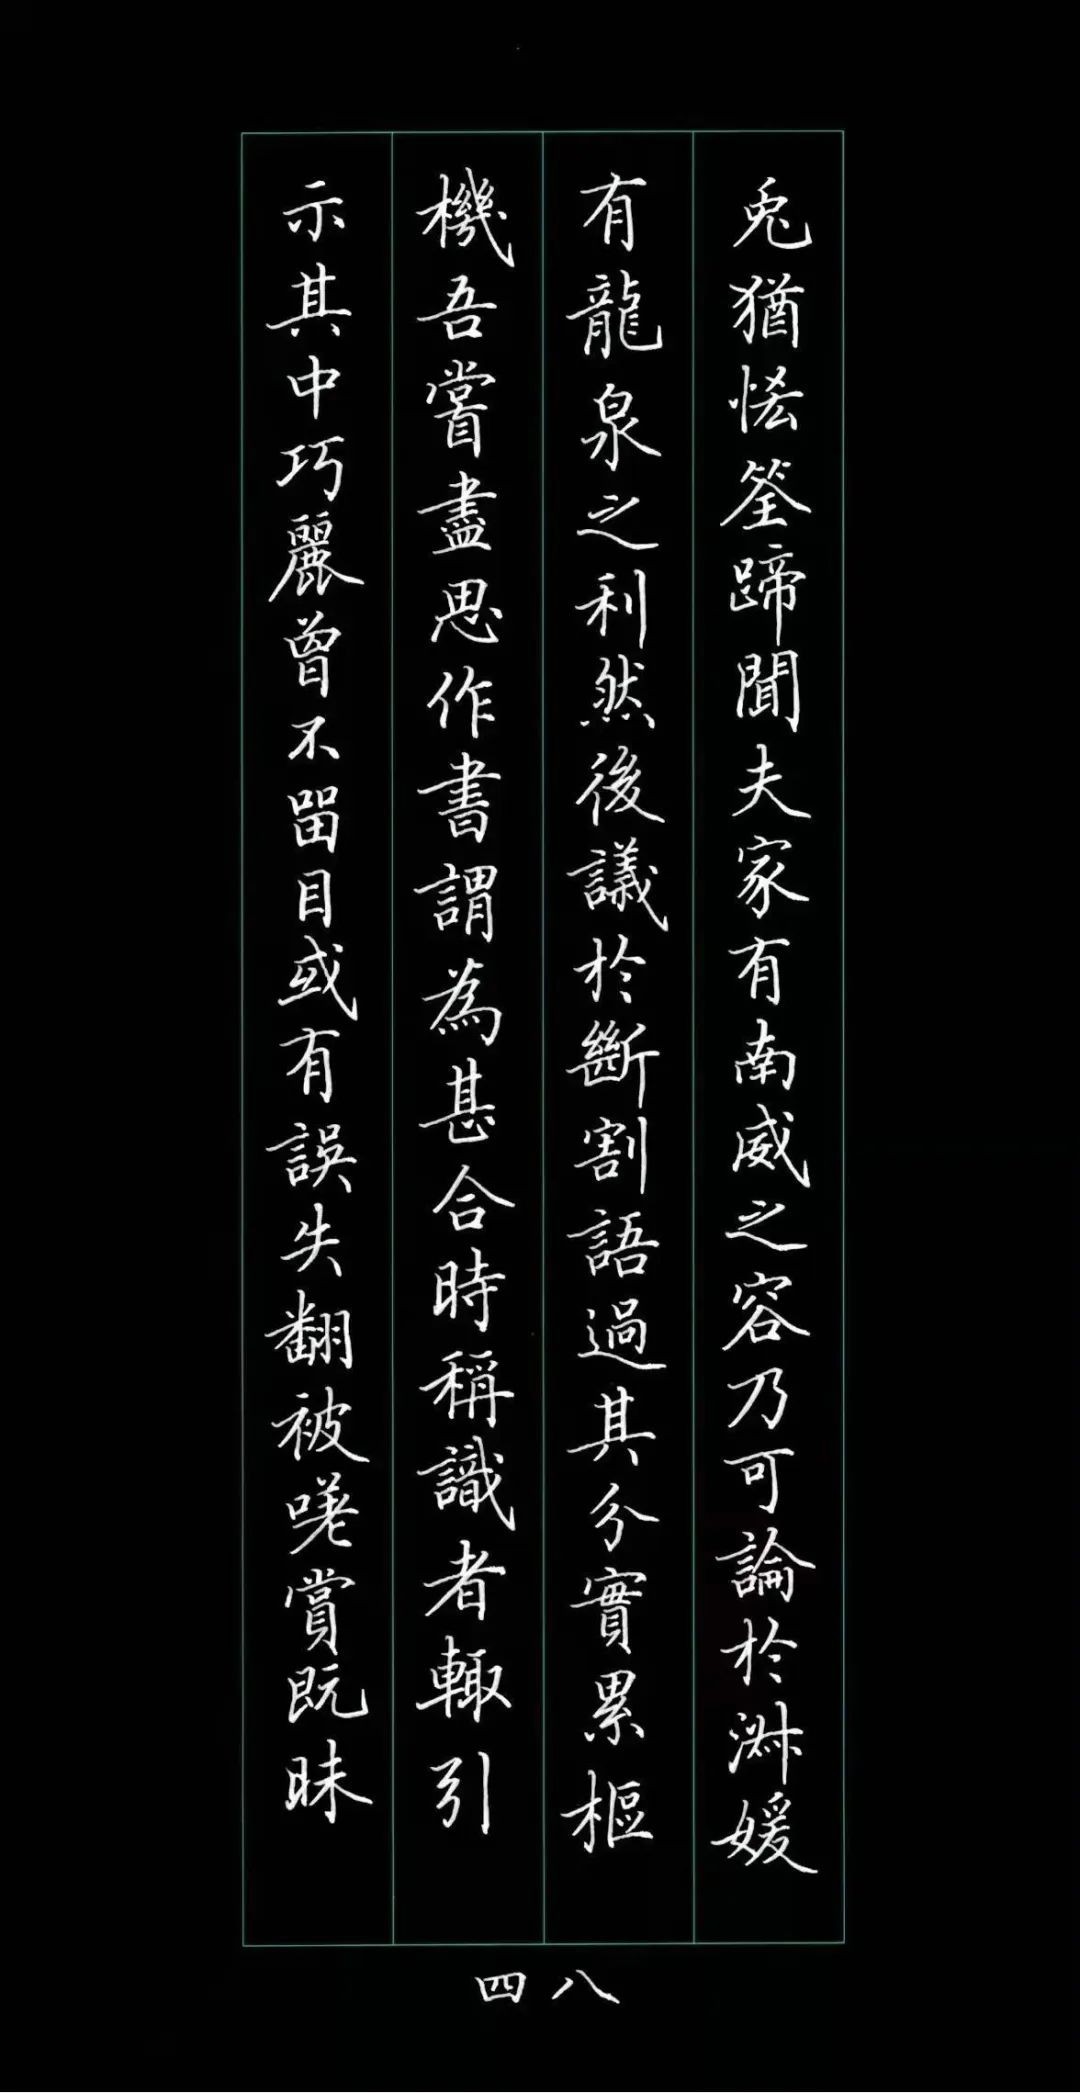 兎猶恡筌蹄聞夫家有南威之容乃可論於淑媛
有龍泉之利然後議於斷割語過其分實累樞
機吾嘗盡思作書謂為甚合時稱識者輒引
示其中巧麗曾不留目或有誤失翻被嗟賞既昧
四八